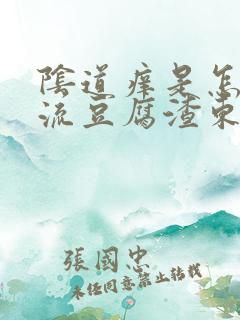 陰道痒是怎
流豆腐渣東
張國忠
未經同意禁止轉載